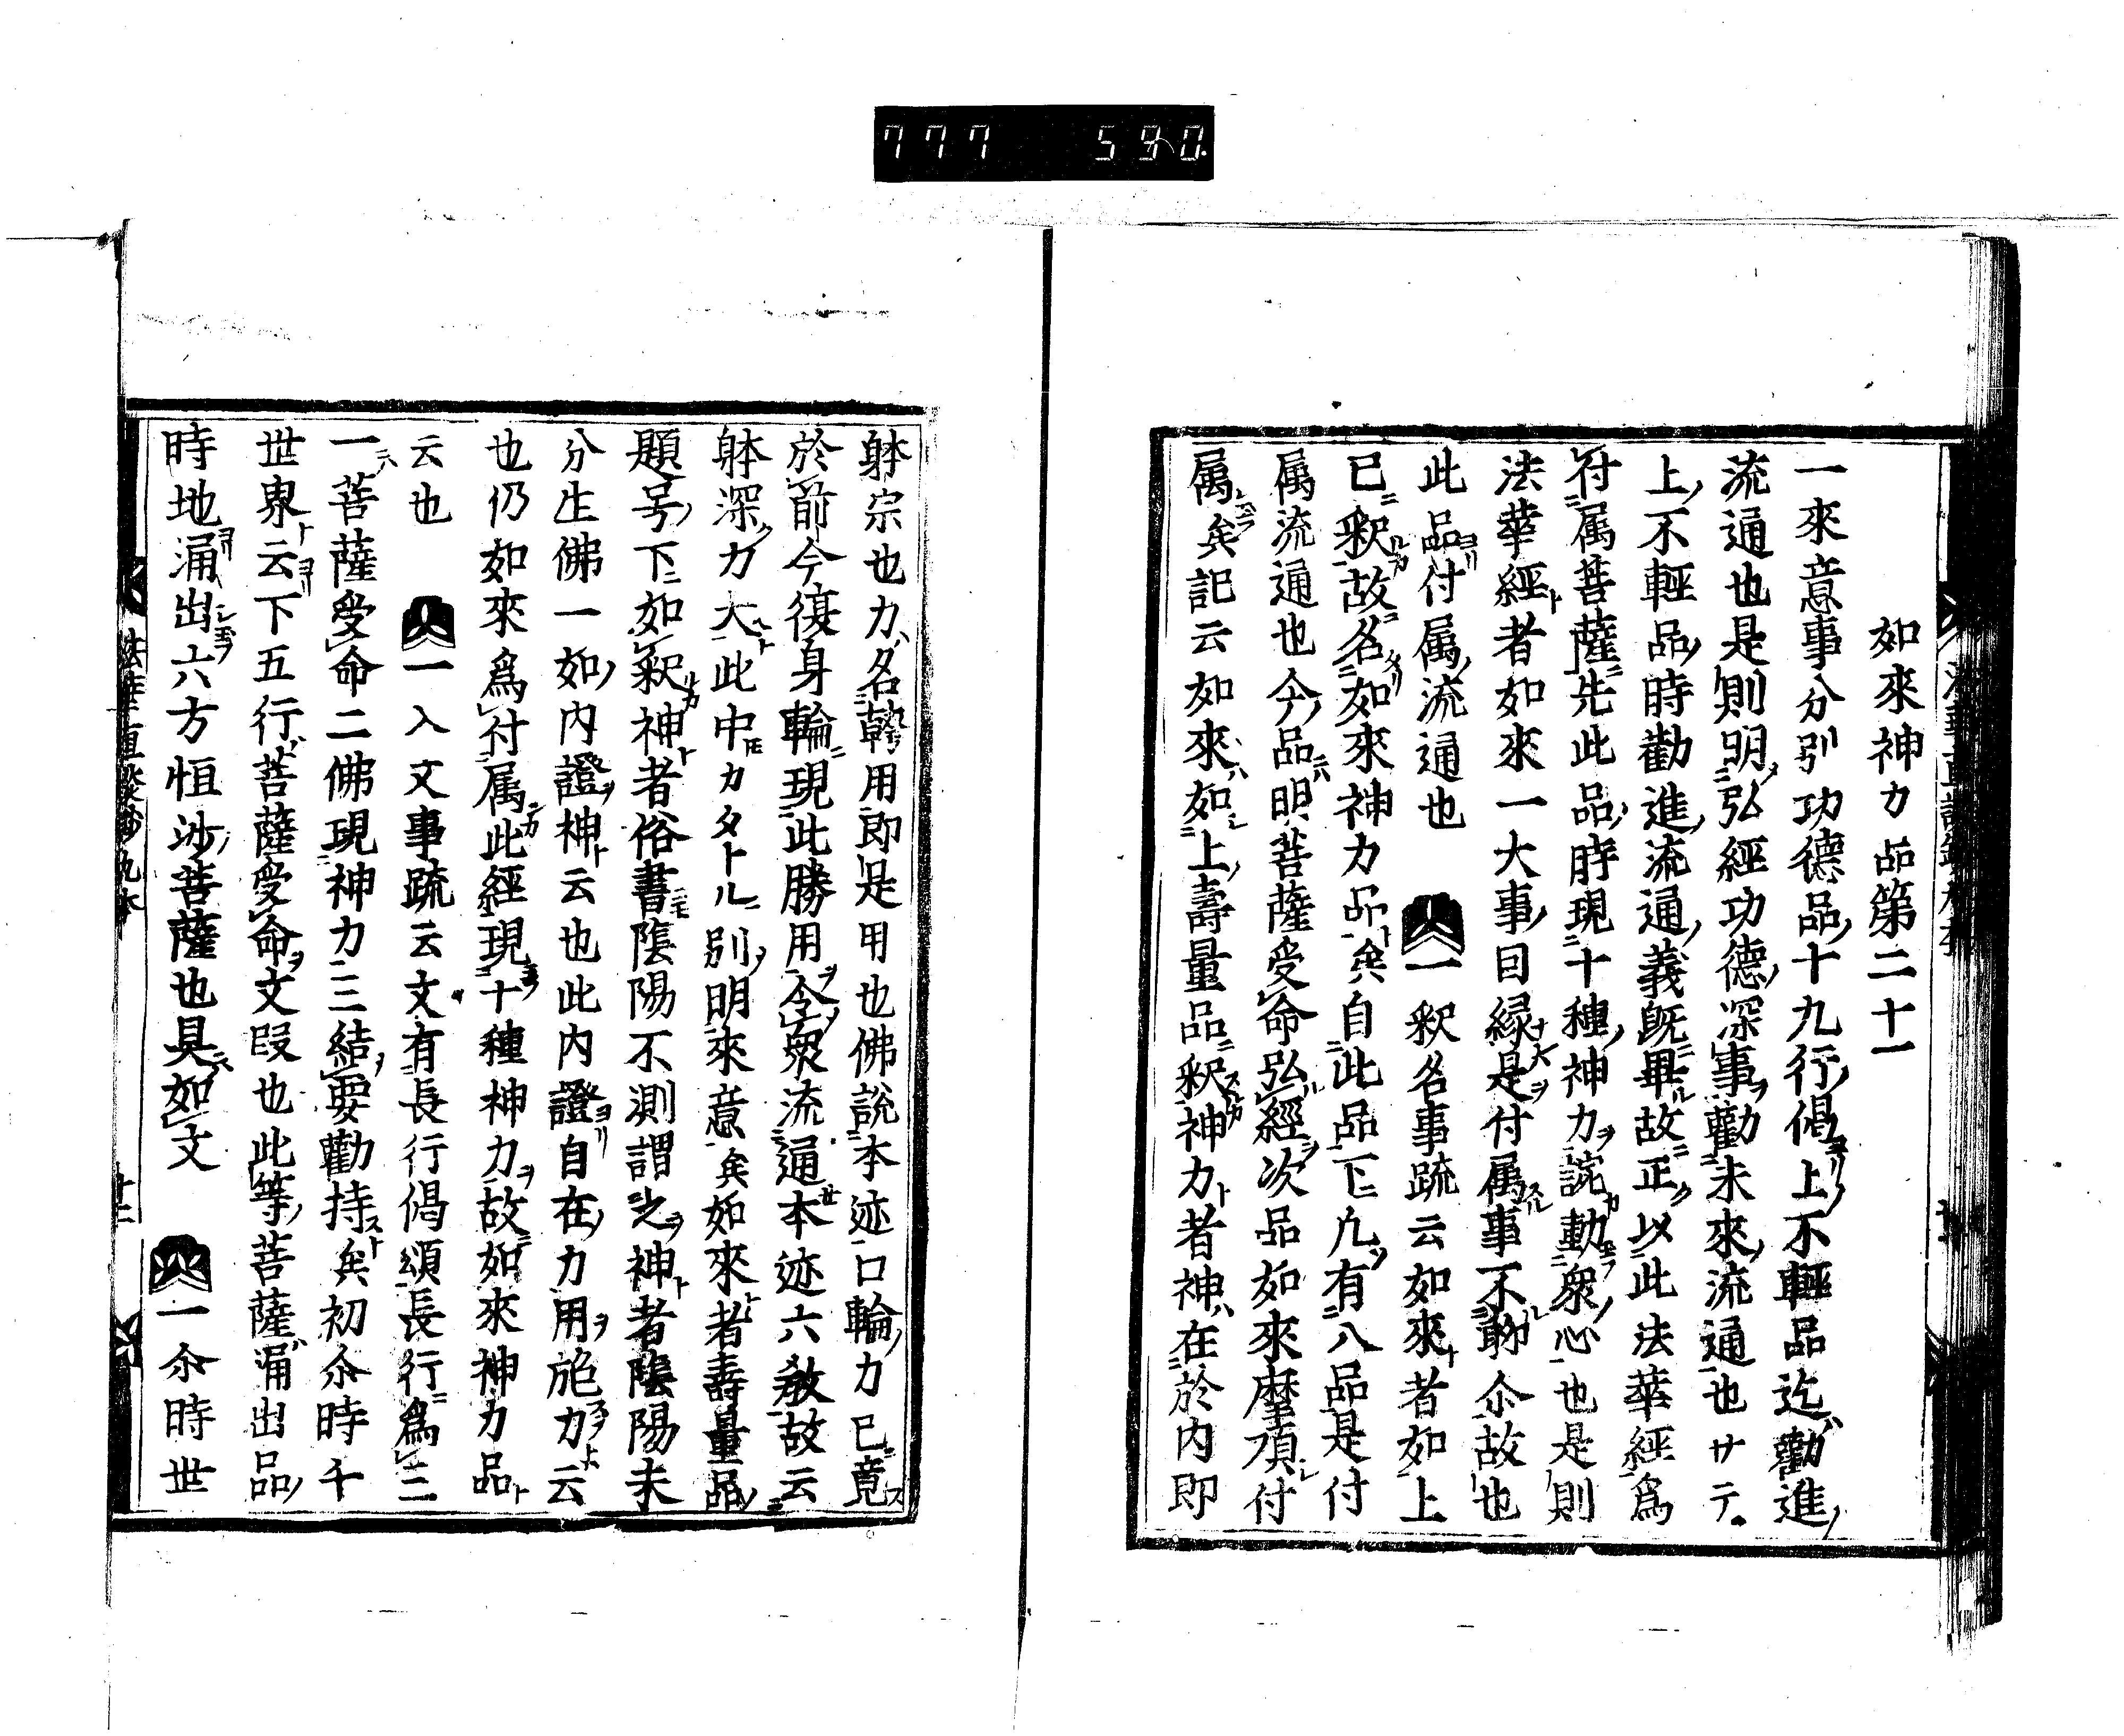 777 590
如來神力品第二十一
一來意事分別功德品十九行偈上不輕品迄勸進
流通也是則明弘經功德深事勸未來流通也サテ
上不輕品時勸進流通義既畢故正以此法華經爲
付属菩薩先此品時現十種神力詫動衆心也是則
法華經者如來一大事因縁是付属事不聊尒故也
此品付属流通也 一釈名事疏云如來者如上
已釈故名如來神力品矣自此品下九有八品是付
属流通也今品明菩薩受命弘經次品如來摩頂付
属矣記云如來如上壽量品釈神力者神在於内即
躰宗也力名幹用即是用也佛説本迹口輪力已竟
於前今復身輪現此勝用令衆流通本迹六教故云
躰深力大此中力タトル別明來意矣如來者壽量品
題号下如釈神者俗書陰陽不測謂之神者陰陽未
分生佛一如内證神云也此内證自在力用施力云
也仍如來爲付属此經現十種神力故如來神力品
云也 一入文事疏云文有長行偈頌長行爲三
一菩薩受命二佛現神力三結要勸持矣初尒時千
世界云下五行菩薩受命文段也此等菩薩涌出品
時地涌出六方恒沙菩薩也具如文 一尒時世
法華直談鈔九本 廿二